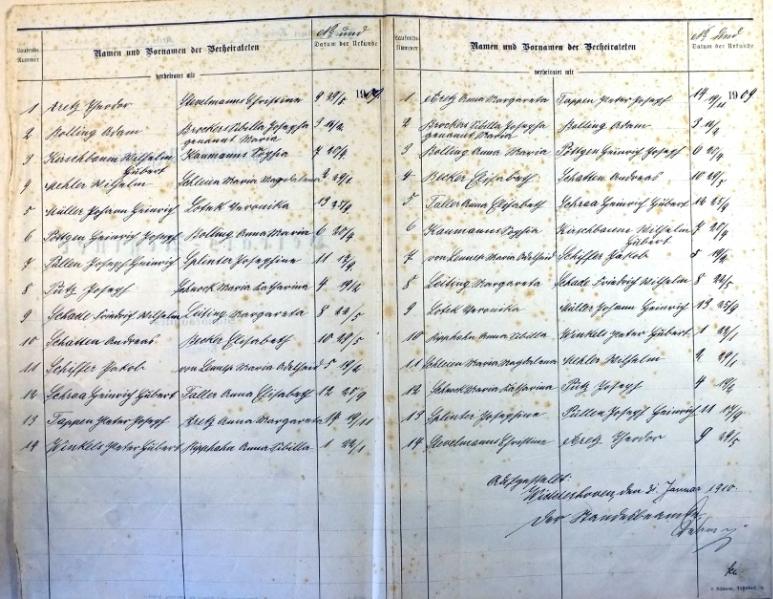 Laufende Nummer
Namen und Vornamen der Verheirateten
verheiratet mit
No und
Datum der Urkunde
1909
1 Aretz Theodor Stevelmanns Christine 9 29/5
2 Bolling Adam Brockers Sibilla Josepha 3
genannt Maria
3 Kirschbaum Wilhelm Kaumanns Sophia 7 20/4
Hubert
4 Mehler Wilhelm Schleien Maria Magdalena 2 29/1
5 Müller Johann Heinrich Veronika 13 25/9
6 Pöttgen Heinrich Joseph Bolling Anna Maria 6 20/4
7 Püllen Joseph Heinrich Splinter Josephine 11
8 Pütz Joseph Maria Katharina 4
9 Schade Friedrich Wilhelm Leiting Margareta 8 22/5
10 Schatten Andreas Becker Elisabeth 10 29/5
11 Schiffler Jakob von Maria Adelheid 5
12 Schraa Heinrich Hubert Faller Anna Elisabeth 12 25/9
13 Tappen Peter Joseph Aretz Anna Margareta 14 19/11
14 Winkels Peter Hubert Anna Sibilla 1 22/1
Laufende Nummer
Namen und Vornamen der Verheirateten
verheiratet mit
No und
Datum der Urkunde
1909
1 Aretz Anna Margareta Tappen Peter Joseph 14 19/11
2 Brockers Sibilla Josepha Bolling Adam 3
genannt Maria
3 Bolling Anna Maria Pöttgen Heinrich Joseph 6 20/4
4 Becker Elisabeth Schatten Andreas 10 29/5
5 Faller Anna Elisabeth Schraa Heinrich Hubert 12 25/9
6 Kaumanns Sophia Kirschbaum Wilhelm 7 20/4
Hubert
7 von Maria Adelheid Schiffler Jakob 5
8 Leiting Margareta Schade Friedrich Wilhelm 8 22/5
9 Veronika Müller Johann Heinrich 13 25/9
10 Anna Sibilla Winkels Peter Hubert 1 22/1
11 Schleien Maria Magdalena Mehler Wilhelm 2 29/1
12 Maria Katharina Pütz Joseph 4
13 Splinter Josephine Püllen Joseph Heinrich 11
14 Stevelmanns Christine Aretz Theodor 9 29/5
Aufgestellt:
den 31. Januar 1910.
Der Standesbeamte